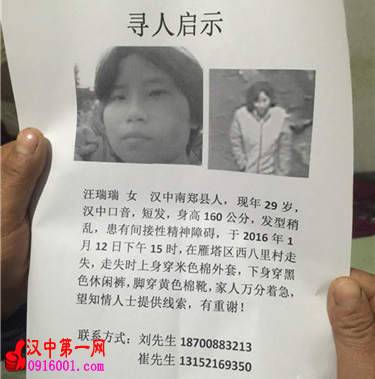 寻人启示
汪瑞瑞 女 汉中南郑县人，现年 29 岁，
汉中口音，短发，身高 160 公分，发型稍
乱，患有间接性精神障碍，于 2016 年 1
月 12 日下午 15 时，在雁塔区西八里村走
失，走失时上身穿米色棉外套，下身穿黑
色休闲裤，脚穿黄色棉靴，家人万分着急，
望知情人士提供线索，有重谢！
联系方式：刘先生 18700883213
崔先生 13152169350
汉中第一网
0916001.com